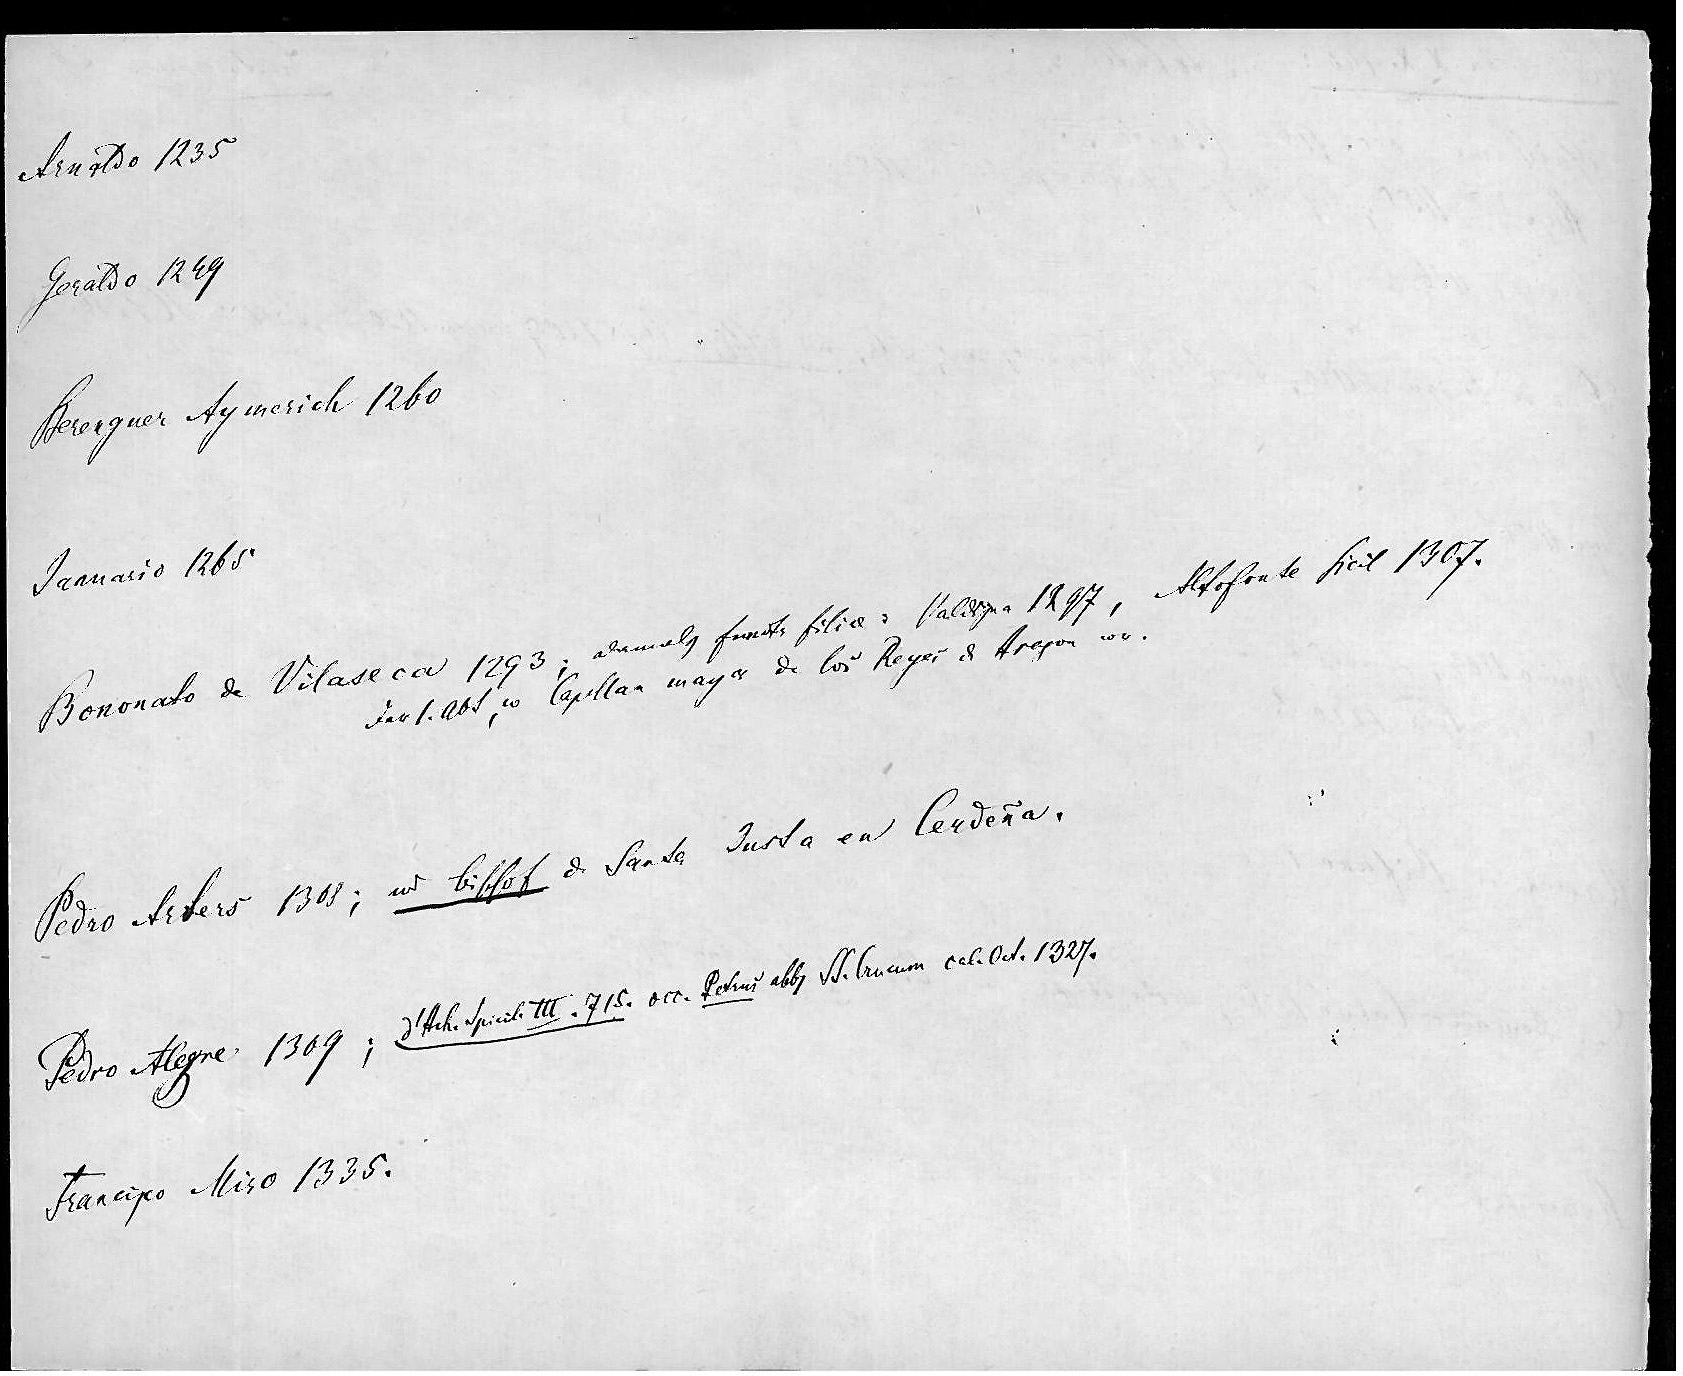 Arnaldo 1235
Geraldo 1249
Berenguer Aymerich 1260
Januario 1265
Bononato de Vilaseca 1293; filiae: Valdigna 1297, Altofonte Sicil 1307.
1. Abt, Capellan mayor de los Reyes de Aragon
Pedro Arbers 1308; Bischof de Santa Justa en Cerdeña.
Pedro Alegre 1309; d'Ach. Spicil. III. 715. occ. Petrus abbs SS. Crucum cal. Oct. 1327.
Francisco Miro 1335.